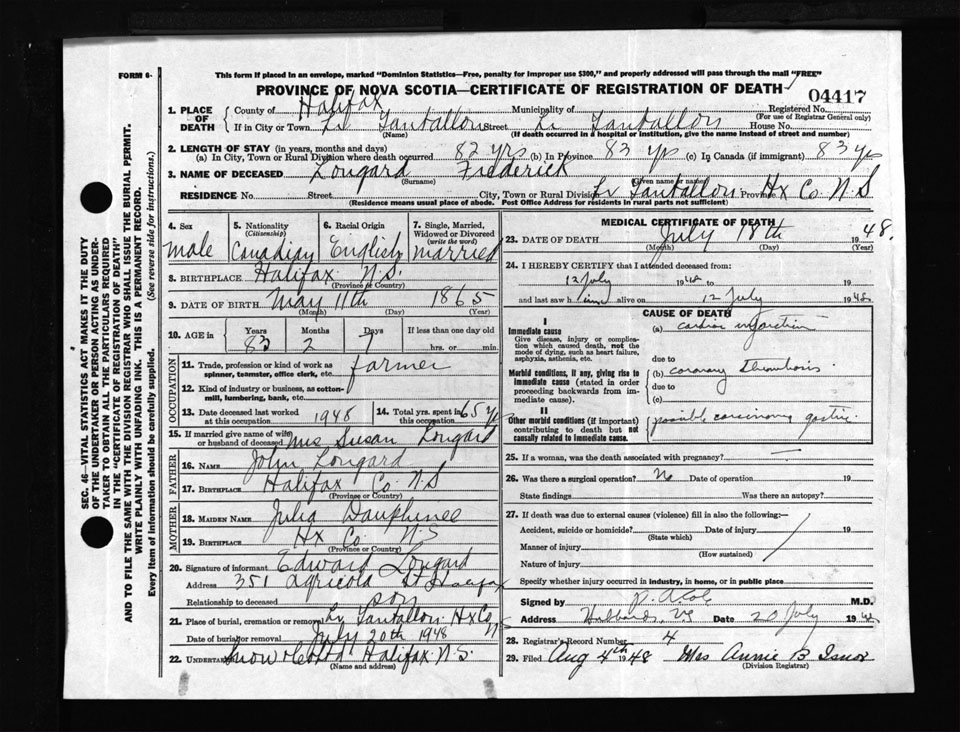 FORM 6-
This form if placed in an envelope, marked "Dominion Statistics—Free, penalty for improper use $300," and properly addressed will pass through the mail "FREE"
PROVINCE OF NOVA SCOTIA—CERTIFICATE OF REGISTRATION OF DEATH
04417
1. PLACE OF DEATH
County of Halifax Municipality of Registered No.
(For use of Registrar General only)
If in City or Town Lr Tantallon Street Lr Tantallon House No.
(Name) (If death occurred in a hospital or institution, give the name instead of street and number)
2. LENGTH OF STAY (in years, months and days)
(a) In City, Town or Rural Division where death occurred 82 yrs (b) In Province 83 yrs (c) In Canada (if immigrant) 83 yrs
3. NAME OF DECEASED Longard Frederick
(Surname) (Given name or names)
RESIDENCE No. Street City, Town or Rural Division Lr Tantallon Province Hx Co. N.S
(Residence means usual place of abode. Post Office Address for residents in rural parts not sufficient)
4. Sex
male
5. Nationality (Citizenship)
Canadian
6. Racial Origin
English
7. Single, Married, Widowed or Divorced (write the word)
married
8. BIRTHPLACE Halifax N.S.
(Province or Country)
9. DATE OF BIRTH May 11th 1865
(Month) (Day) (Year)
10. AGE in Years Months Days If less than one day old
83 2 7 hrs. or min.
OCCUPATION
11. Trade, profession or kind of work as spinner, teamster, office clerk, etc. farmer
12. Kind of industry or business, as cotton-mill, lumbering, bank, etc.
13. Date deceased last worked at this occupation 1948
14. Total yrs. spent in this occupation 65 yrs
15. If married give name of wife or husband of deceased Mrs Susan Longard
FATHER
16. NAME John Longard
17. BIRTHPLACE Halifax Co. N.S
(Province or Country)
MOTHER
18. MAIDEN NAME Julia Dauphinee
19. BIRTHPLACE Hx Co. N.S
(Province or Country)
20. Signature of informant Edward Longard
Address 351 Agricola St Halifax
Relationship to deceased son
21. Place of burial, cremation or removal Lr Tantallon Hx Co NS
Date of burial or removal July 20th 1948
22. Undertaker Snow Halifax N.S.
(Name and address)
MEDICAL CERTIFICATE OF DEATH
23. DATE OF DEATH July 18th 1948.
(Month) (Day) (Year)
24. I HEREBY CERTIFY that I attended deceased from:
12 July 1948 to 19
and last saw him alive on 12 July 1948
CAUSE OF DEATH
I
Immediate cause
Give disease, injury or complication which caused death, not the mode of dying, such as heart failure, asphyxia, asthenia, etc.
(a) cardiac infarction
due to
Morbid conditions, if any, giving rise to immediate cause (stated in order proceeding backwards from immediate cause).
(b) coronary thrombosis.
due to
(c)
II
Other morbid conditions (if important) contributing to death but not causally related to immediate cause.
possible carcinoma gastric.
25. If a woman, was the death associated with pregnancy?
26. Was there a surgical operation? No Date of operation 19
State findings Was there an autopsy?
27. If death was due to external causes (violence) fill in also the following:—
Accident, suicide or homicide? Date of injury 19
(State which)
Manner of injury
(How sustained)
Nature of injury
Specify whether injury occurred in industry, in home, or in public place
Signed by M.D.
Address Hubbards, NS Date 20 July 1948
28. Registrar's Record Number 4
29. Filed Aug 4th 1948 Mrs Annie B Isnor
(Division Registrar)
SEC. 46—VITAL STATISTICS ACT MAKES IT THE DUTY
OF THE UNDERTAKER OR PERSON ACTING AS UNDER-
TAKER TO OBTAIN ALL THE PARTICULARS REQUIRED
IN THE "CERTIFICATE OF REGISTRATION OF DEATH"
AND TO FILE THE SAME WITH THE DIVISION REGISTRAR WHO SHALL ISSUE THE BURIAL PERMIT.
WRITE PLAINLY WITH UNFADING INK. THIS IS A PERMANENT RECORD.
Every item of information should be carefully supplied. (See reverse side for instructions.)